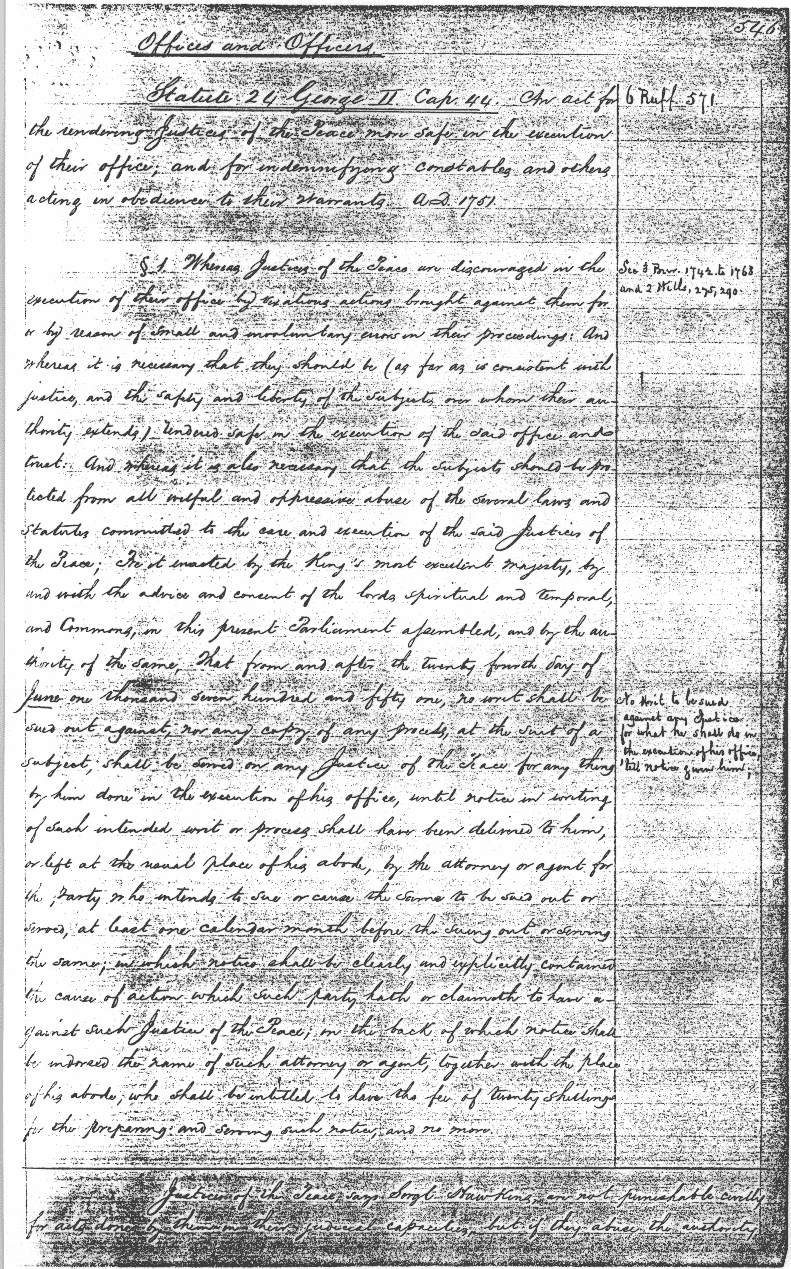 546
Offices and Officers.
Statute 24 George II Cap. 44. An act for
6 Ruff. 571.
the rendering Justices of the Peace more safe in the execution
of their office; and for indemnifying constables and others
acting in obedience to their Warrants. A.D. 1751.
§ 1. Whereas Justices of the Peace are discouraged in the
See 3 Burr. 1742. to 1768
execution of their office by vexatious actions brought against them for
and 2 Wills, 275, 290.
or by reason of small and involuntary errors in their proceedings: And
whereas it is necessary that they should be (as far as is consistent with
justice, and the safety and liberty of the subjects over whom their au-
thority extends) rendered safe in the execution of the said office and
trust: And whereas it is also necessary that the subjects should be pro-
tected from all wilful and oppressive abuse of the several laws and
statutes committed to the care and execution of the said Justices of
the Peace; Be it enacted by the King's most excellent majesty, by
and with the advice and consent of the lords spiritual and temporal,
and Commons, in this present Parliament assembled, and by the au-
thority of the same, That from and after the twenty fourth day of
June one thousand seven hundred and fifty one, no writ shall be
No Writ to be sued
sued out against, nor any copy of any process, at the suit of a
against any Justice
for what he shall do in
subject, shall be served on any Justice of the Peace for any thing
the execution of his office,
'till notice given him,
by him done in the execution of his office, until notice in writing
of such intended writ or process shall have been delivered to him,
or left at the usual place of his abode, by the attorney or agent for
the Party who intends to sue or cause the same to be sued out or
served, at least one calendar month before the suing out or serving
the same; in which notice shall be clearly and explicitly contained
the cause of action which such party hath or claimeth to have a-
gainst such Justice of the Peace; on the back of which notice shall
be indorsed the name of such attorney or agent, together with the place
of his abode, who shall be intitled to have the fee of twenty shillings
for the preparing and serving such notice, and no more.
Justices of the Peace, says Serjt Hawkins, are not punishable civilly
for acts done by them in their judicial capacities, but if they abuse the authority